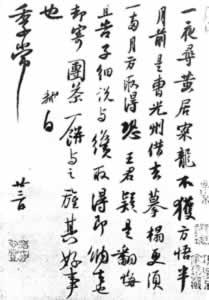 一夜尋黃居寀龍不獲方悟半
月前是曹光州借去摹搨更須
一兩月方取得恐王君疑是翻悔
且告子細說與纔取得即納去也
却寄團茶一餅與之旌其好事
也 軾白
季常
廿三日